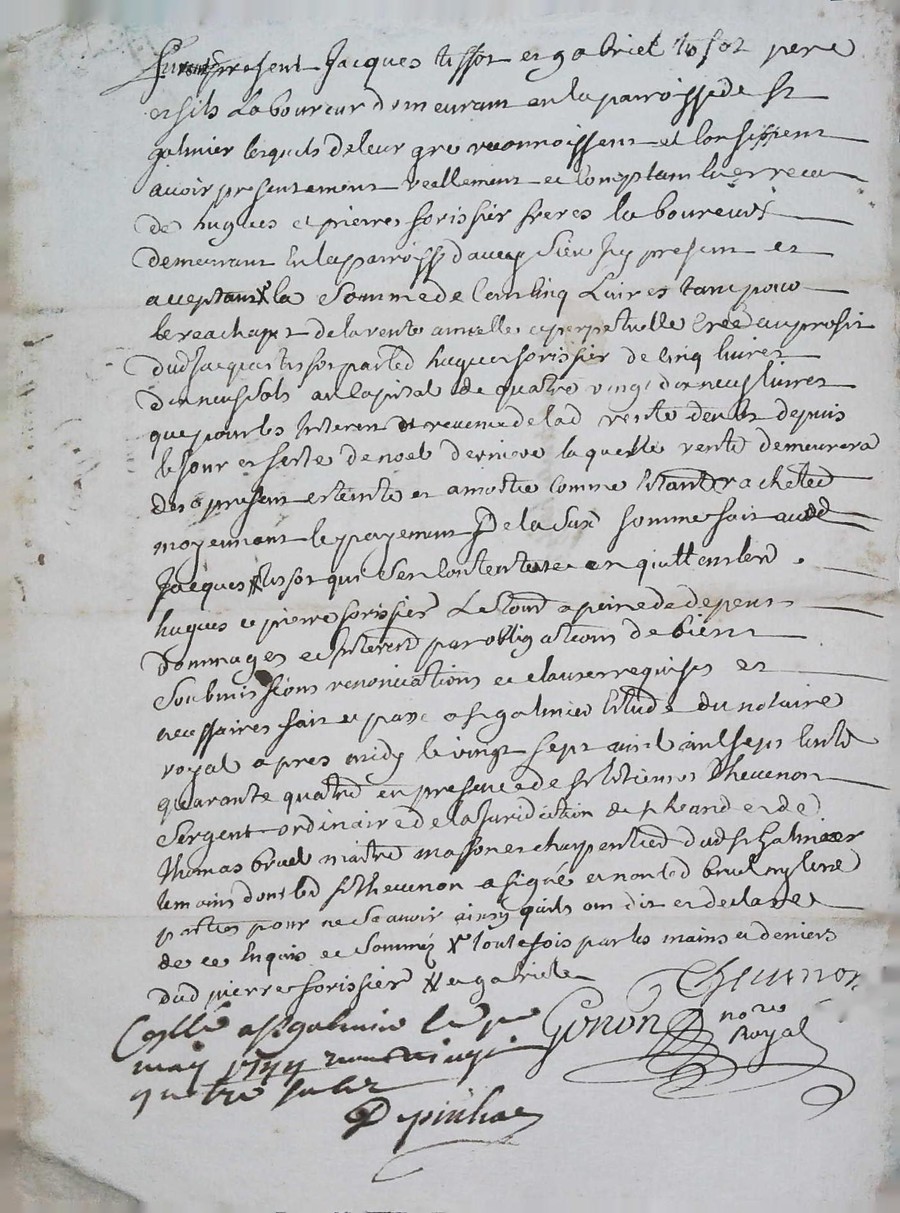 Furent present Jacques tissot et gabriel tissot pere
et fils Laboureur demeurant en la parroisse de St
galmier lesquels de leur gre reconnoissent et confessent
avoir presentement reellement et comptant heu et receu
de hugues et pierre forissier freres laboureurs
demeurant En la parroisse d'aveyzieu icy present et
acceptant la Somme de Cent cinq Livres tant pour
le reachapt de la rente annuelle et perpetuelle creé au profit
dud Jacques tissot par led hugues forissier de cinq livres
dix neuf sols au capital de quatre vingt dix neuf livres
que pour les Interest et revenue de lad rente deubs depuis
le jour et feste de noel derniere laquelle rente demeurera
des a present esteinte et amortie comme Estant rachetee
moyennant le payement De la Sud somme fait aud
Jacques tissot qui s'en contente et en quitte lesd
hugues et pierre forissier Le tout a peine de depens
dommages et Interest par obligations de biens
Soubmissions renonciations et clauses requises et
necessaires fait et passé a St galmier Etude du notaire
royal apres midy le vingt sept avril mil sept cents
quarante quatre en presence de Sr Etienne Thevenon
Sergent ordinaire de la Juridiction de et de
thomas bruel maitre masson et charpentier dud St Galmier
temoins dont led Sr thevenon a signé et non led bruel ny lesd
parties pour ne Scavoir ainsy qu'ils ont dit et declare
de ce Enquis et Sommés toutefois par les mains et deniers
dud pierre forissier et gabriel
Thevenon
Gonon nore Royal
Collé a St galmier le pr
may 1744 vingt
quatre sols
Depinhac